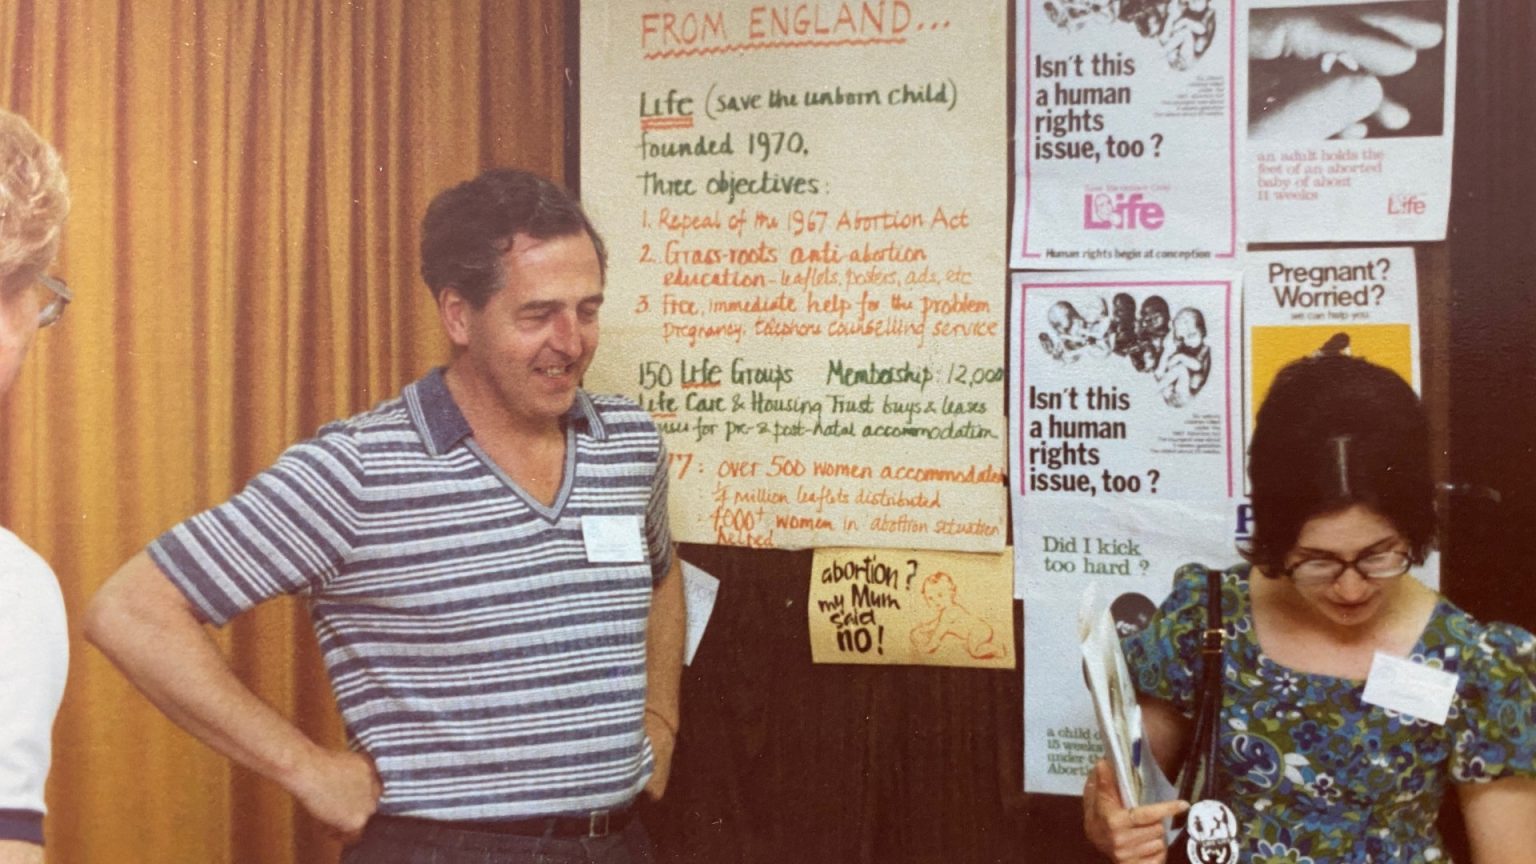 FROM ENGLAND...
Life (save the unborn child)
founded 1970.
Three objectives:
1. Repeal of the 1967 Abortion Act
2. Grass-roots anti-abortion
education - leaflets, posters, ads, etc
3. Free, immediate help for the problem
pregnancy. telephone counselling service
150 Life Groups Membership: 12,000
Life Care & Housing Trust buys & leases
for pre- & post-natal accommodation
77: over 500 women accommodated
million leaflets distributed
women in abortion situation
helped
abortion?
my Mum
said
no!
Isn't this
a human
rights
issue, too?
Life
Human rights begin at conception
an adult holds the
feet of an aborted
baby of about
11 weeks
Life
Isn't this
a human
rights
issue, too?
Pregnant?
Worried?
we can help you
Did I kick
too hard?
a child
15 weeks
under